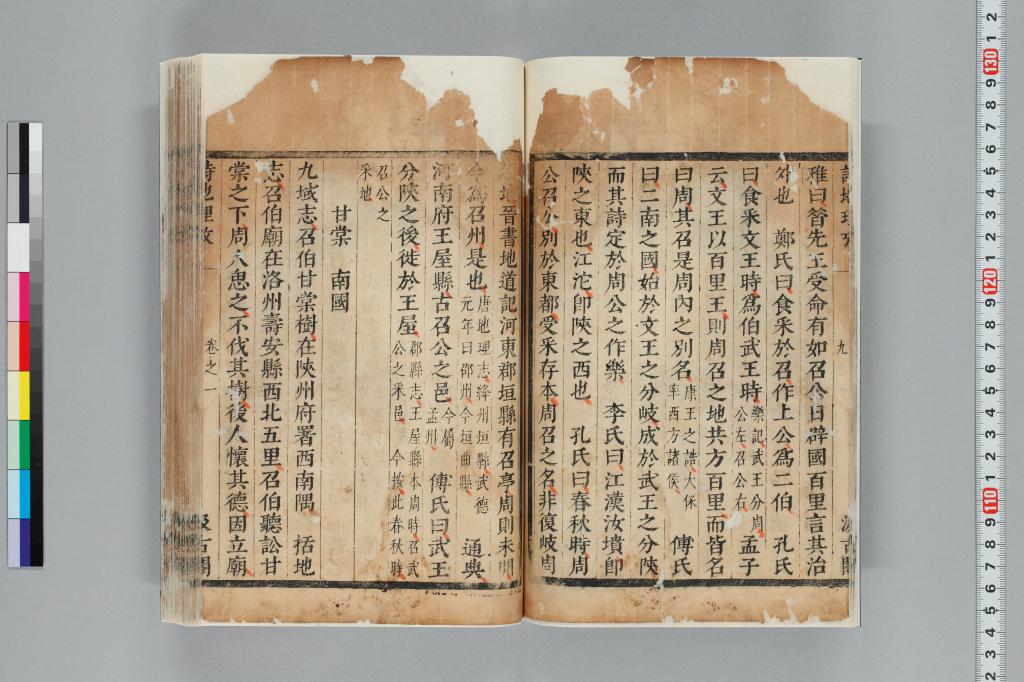 雅曰昝先王受命有如召公日辟國百里言其治
外也　鄭氏曰食采於召作上公爲二伯　孔氏
曰食采文王時爲伯武王時樂記武王分周公左召公右　孟子
云文王以百里王則周召之地共方百里而皆名
曰周其召是周内之別名康王之誥大保率西方諸侯　傳氏
曰二南之國始於文王之分岐成於武王之分陜
而其詩定於周公之作樂　李氏曰江漢汝墳卽
陜之東也江沱卽陜之西也　孔氏曰春秋時周
公召公別於東都受采存本周召之名非復岐周
之地晉書地道記河東郡垣縣有召亭周則未聞
今爲召州是也唐地理志絳州垣縣武德元年曰邵州今垣曲縣　通典
河南府王屋縣古召公之邑今屬孟州　傳氏曰武王
分陜之後徙於王屋郡縣志王屋縣本周時召武公之采邑　今按此春秋時
召公之采地
甘棠　南國
九域志召伯甘棠樹在陜州府署西南隅　括地
志召伯廟在洛州壽安縣西北五里召伯聽訟甘
棠之下周人思之不伐其樹後人懷其德因立廟
詩地理攷　卷之一　汲古閣